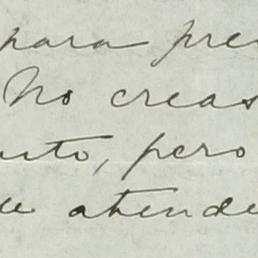 para pre
No creas
uto, pero
e atende